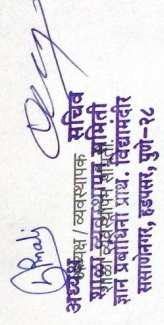 Bmali
अध्यक्ष / व्यवस्थापक सचिव
शाळा व्यवस्थापन समिती
ज्ञान प्रबोधिनी प्राथ. विद्यामंदीर
ससाणेनगर, हडपसर, पुणे-२८